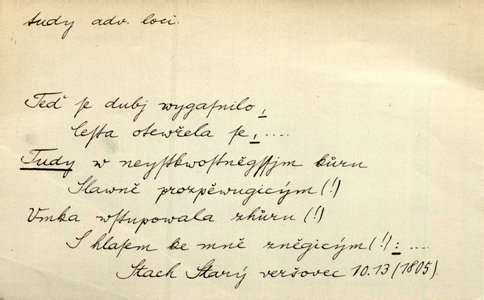 tudy adv. loci.
Teď ſe dubj wygaſnilo,
ceſta otewřela ſe, ....
Tudy w neyſkwoſtněgſſjm kůru
Slawně prozpěwugicým (!)
Vmka wſtupowala zhůru (!)
S hlaſem ke mně zněgicým (!): ....
Stach Starý veršovec 10.13 (1805)